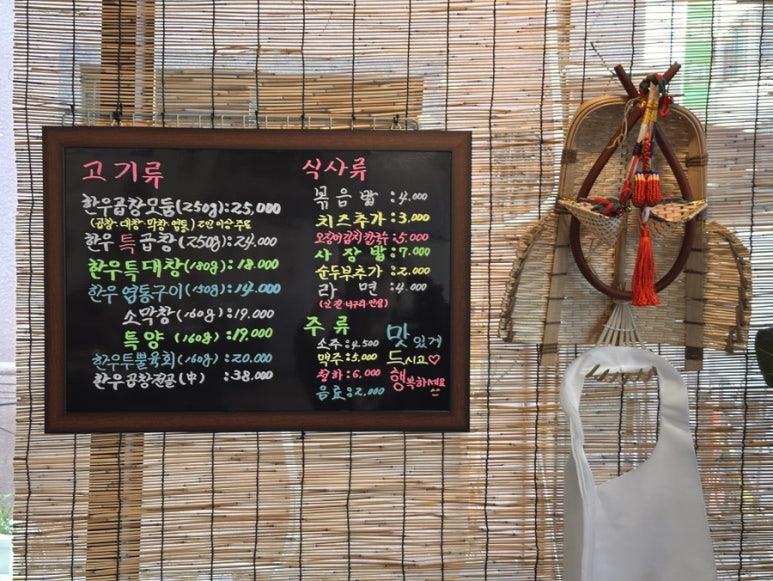 고기류
한우곱창모듬(250g):25,000
(곱창·대창·막창·염통) 2인 이상 주문
한우 특곱창(250g):24.000
한우특대창(180g):18.000
한우 염통구이(150g):14.000
소막창(160g):19.000
특양 (160g):19.000
한우투뿔육회(160g):20.000
한우곱창전골(中):38.000
식사류
볶음밥:4.000
치즈추가:3,000
오징어김치칼국수:5.000
사장밥:7.000
순두부추가:2.000
라면:4.000
주류
소주:4.500
맥주:5.000
청하:6.000
음료:2.000
맛있게
드시고♡
행복하세요